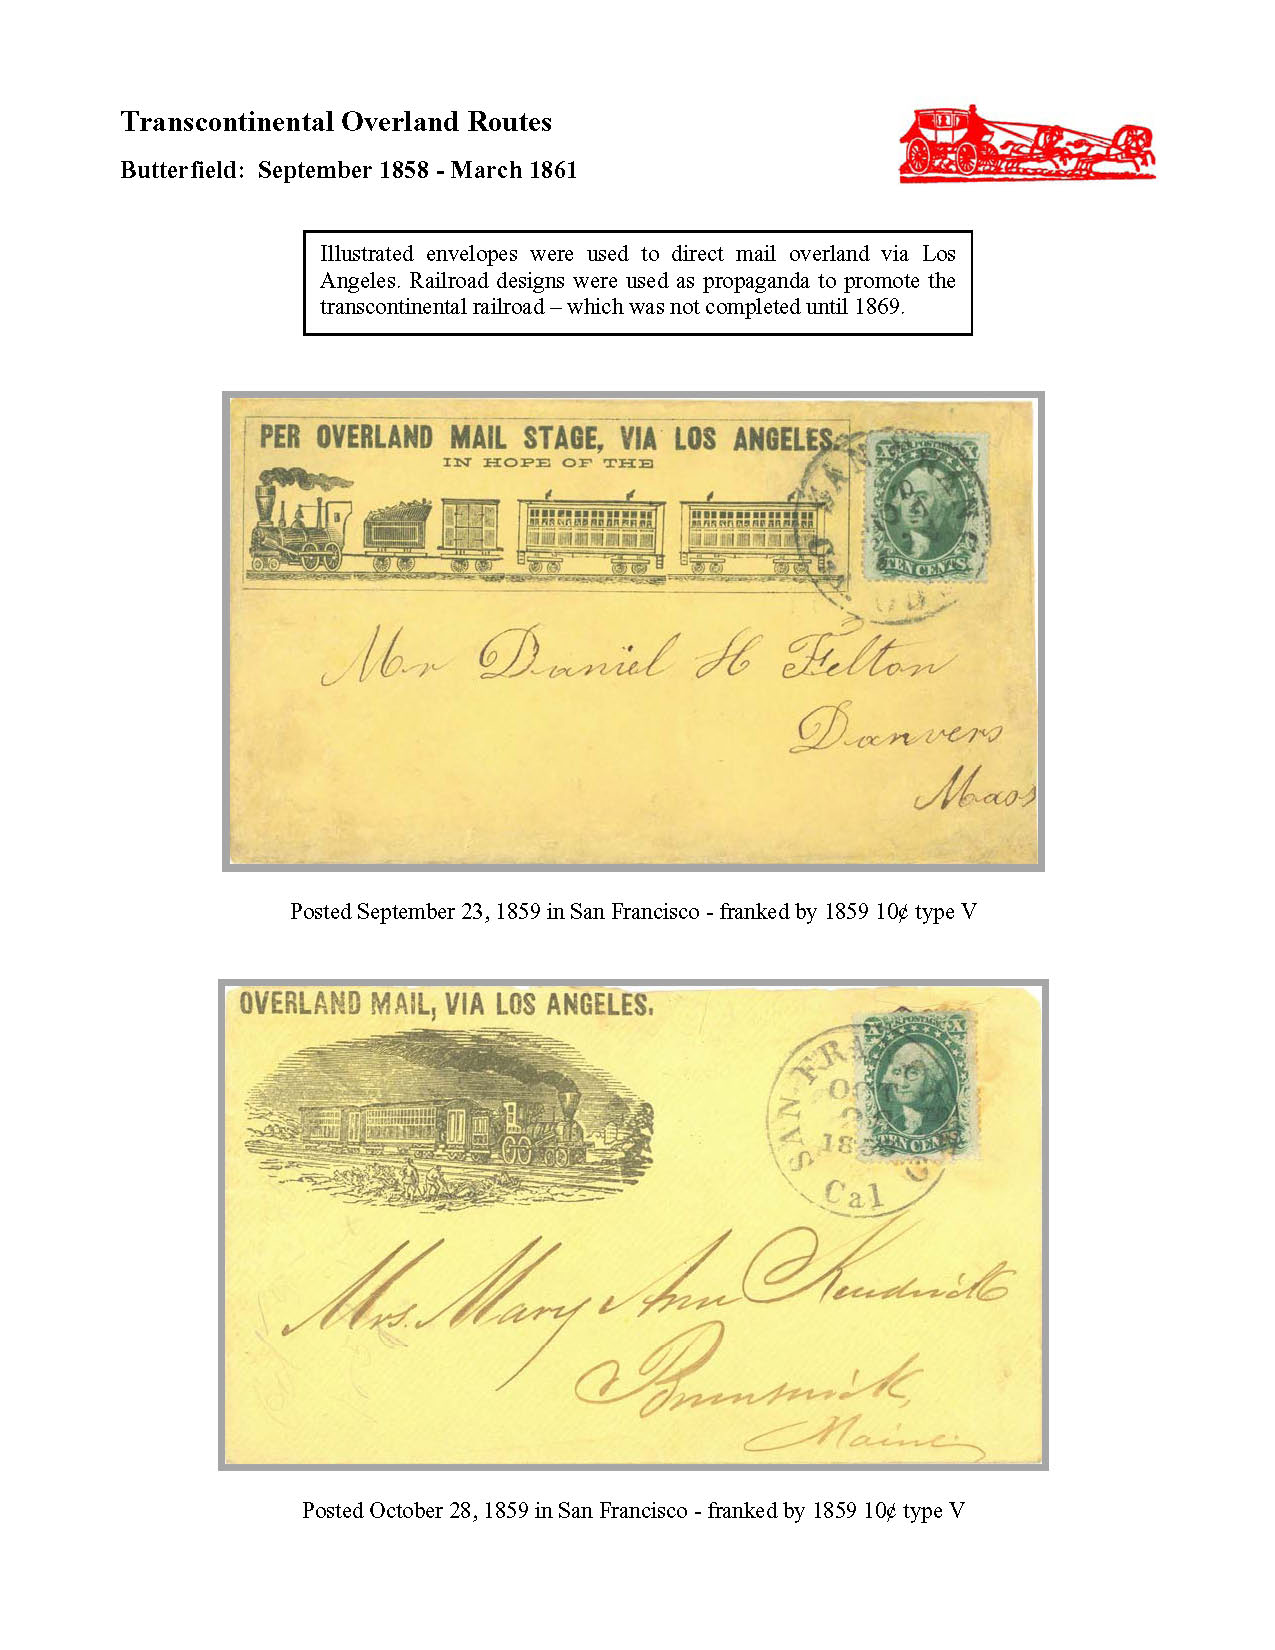 Transcontinental Overland Routes
Butterfield: September 1858 - March 1861
Illustrated envelopes were used to direct mail overland via Los
Angeles. Railroad designs were used as propaganda to promote the
transcontinental railroad – which was not completed until 1869.
PER OVERLAND MAIL STAGE, VIA LOS ANGELES.
IN HOPE OF THE
X X
TEN CENTS
Mr Daniel H Felton
Danvers
Mass
Posted September 23, 1859 in San Francisco - franked by 1859 10¢ type V
OVERLAND MAIL, VIA LOS ANGELES.
X U.S. POSTAGE X
TEN CENTS
SAN FRA
OCT
Cal
Mrs. Mary Ann Kendrick
Brunswick,
Maine
Posted October 28, 1859 in San Francisco - franked by 1859 10¢ type V